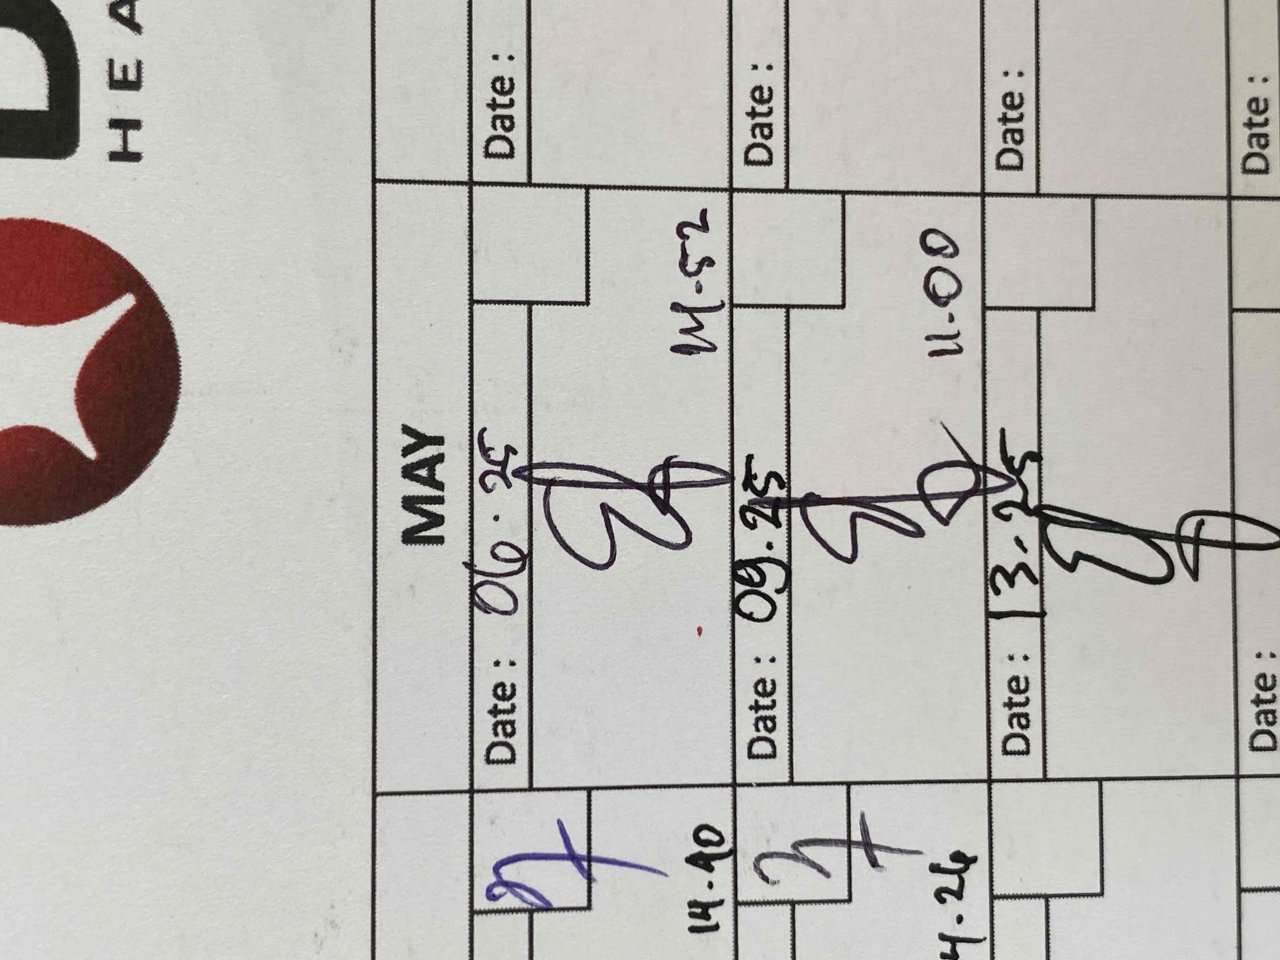 D
HEA
MAY
Date :
Date : 06.25
14.52
14.40
Date :
Date : 09.25
11.00
4.26
Date :
Date : 13.25
Date :
Date :